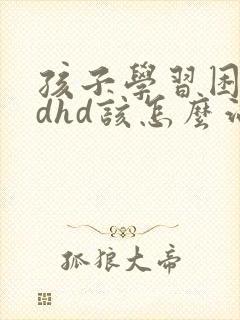 孩子學習困
dhd該怎麼
孤狼大帝